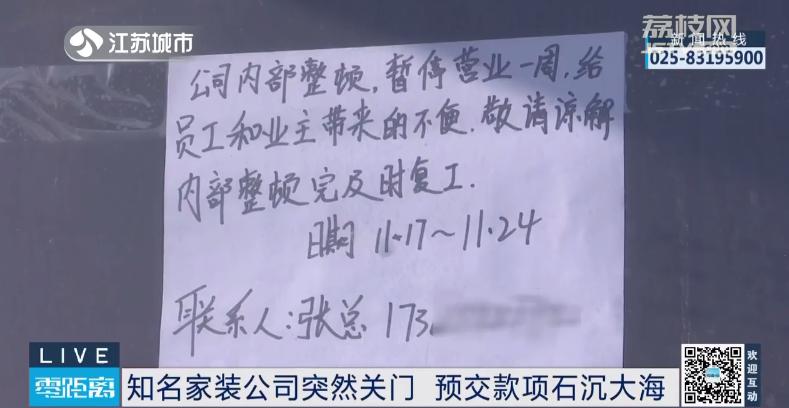 江苏城市
荔枝网
新闻热线
025-83195900
公司内部整顿，暂停营业一周，给
员工和业主带来的不便，敬请谅解
内部整顿完及时复工.
日期 11.17～11.24
联系人：张总 173
LIVE
零距离
知名家装公司突然关门 预交款项石沉大海
欢迎互动